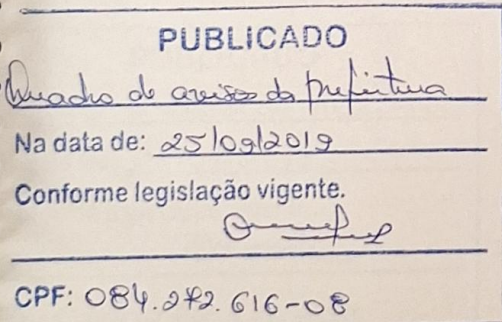 PUBLICADO
Quadro de avisos da prefeitura
Na data de: 25/09/2019
Conforme legislação vigente.
CPF: 084.272.616-08